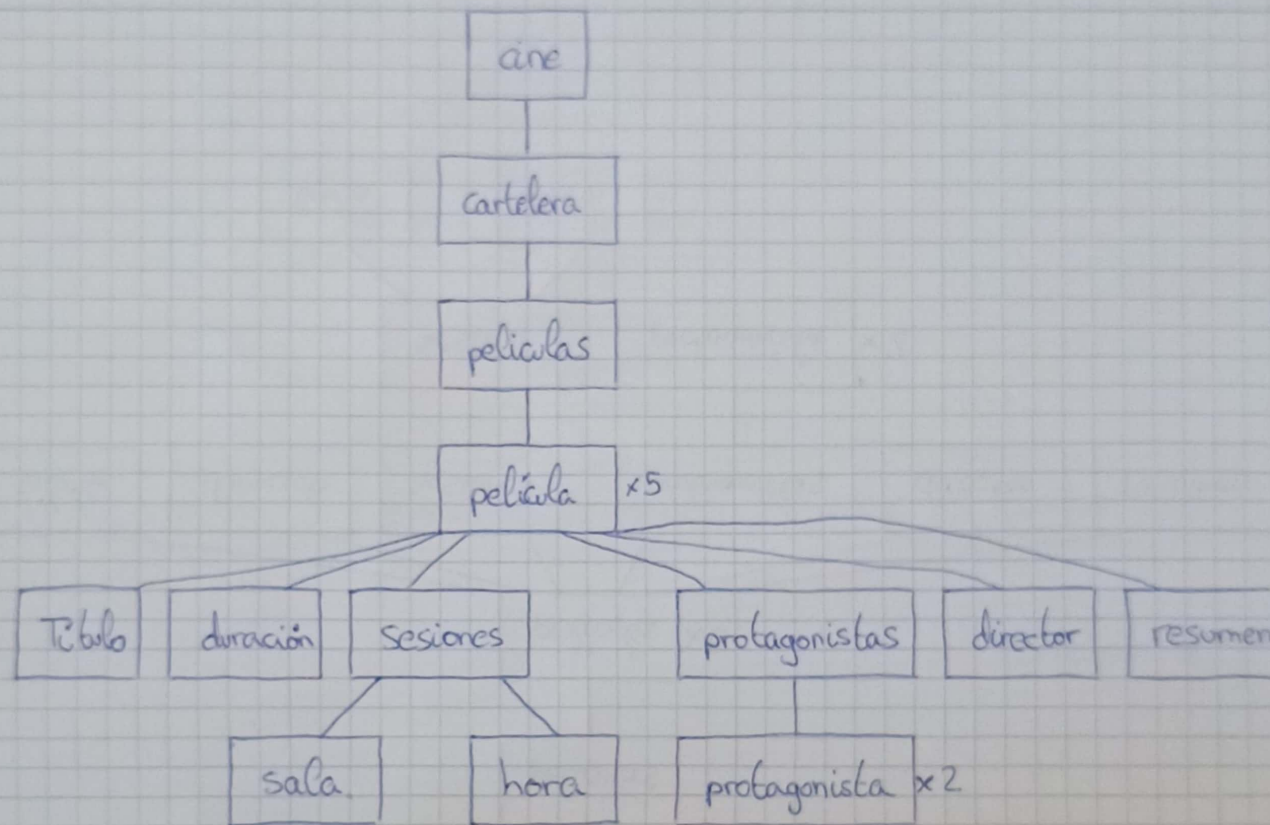 cine
cartelera
peliculas
película x5
Título duración sesiones protagonistas director resumen
sala hora protagonista x2